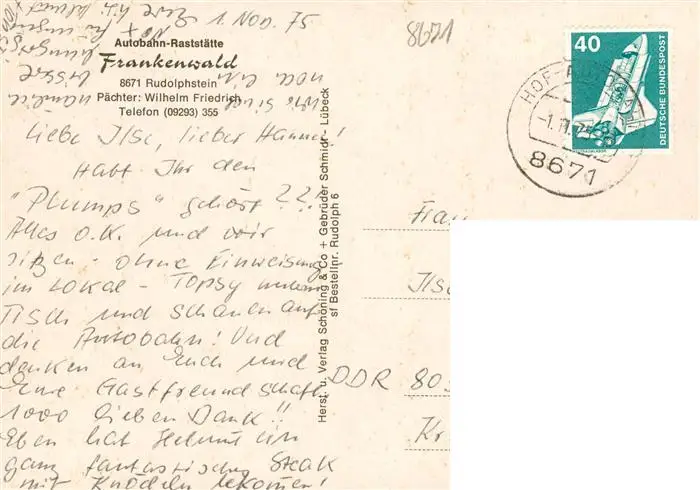 1. Nov. 75
8671
Autobahn-Raststätte
Frankenwald
8671 Rudolphstein
Pächter: Wilhelm Friedrich
Telefon (09293) 355
Liebe Ilse, lieber Hannes!
Habt Ihr den
"Plumps" gehört??
Alles O.K. und wir
sitzen - ohne Einweisung -
im Lokal - Topsy unterm
Tisch und schauen auf
die Autobahn! Und
denken an Euch und
Eure Gastfreundschaft.
1000 lieben Dank!!
Eben hat Helmut ein
ganz fantastisches Steak
mit Knödeln bekommen!
Herst. u. Verlag Schöning & Co + Gebrüder Schmidt - Lübeck
sf Bestellnr. Rudolph 6
40
DEUTSCHE BUNDESPOST
HOF
8671
Frau
Ilse
DDR 80
Kr